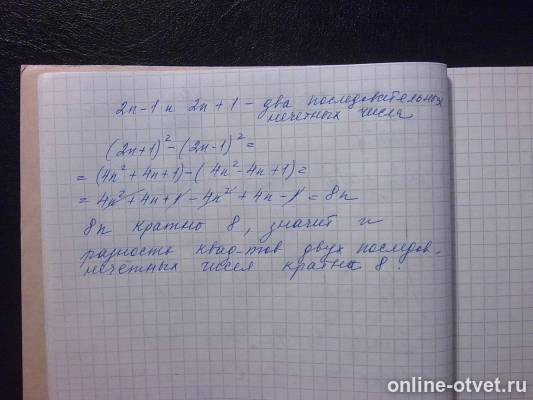 2n-1 и 2n+1 - два последовательных
нечетных числа
(2n+1)²-(2n-1)²=
=(4n²+4n+1)-(4n²-4n+1)=
=4n²+4n+1-4n²+4n-1=8n
8n кратно 8, значит и
разность квад-тов двух последов-
нечётных чисел кратна 8.
online-otvet.ru